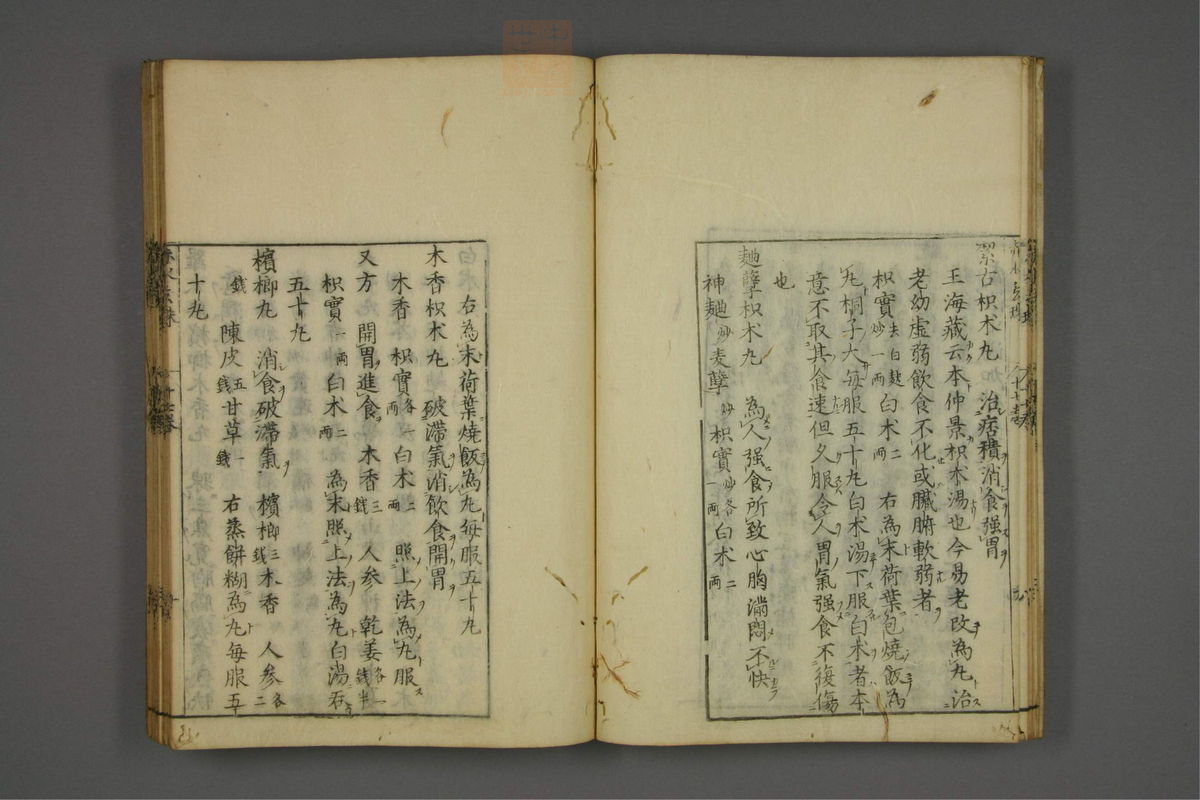 潔古枳朮丸　治痞積消食强胃
王海藏云本仲景枳朮湯也今易老改為丸治
老幼虛弱飲食不化或臟腑軟弱者
枳實去白麩炒一兩白朮二兩　右為末荷葉包燒飯為
丸桐子大每服五十丸白朮湯下服白朮者本
意不取其食速但久服令人胃氣强食不復傷
也
麯孼枳朮丸　為人强食所致心胸滿悶不快
神麯炒麦孼炒枳實炒各一兩白朮二兩
右為末荷葉燒飯為丸每服五十丸
木香枳朮丸　破滯氣消飲食開胃
木香　枳實各一兩白朮二兩　照上法為丸服
又方　開胃進食　木香三錢人参　乾姜各一錢半
枳實一兩白朮二兩　為末照上法為丸白湯吞
五十丸
檳榔丸　消食破滯氣　檳榔三錢木香　人参各二
錢　陳皮五錢甘草一錢　右蒸餅糊為丸每服五
十丸